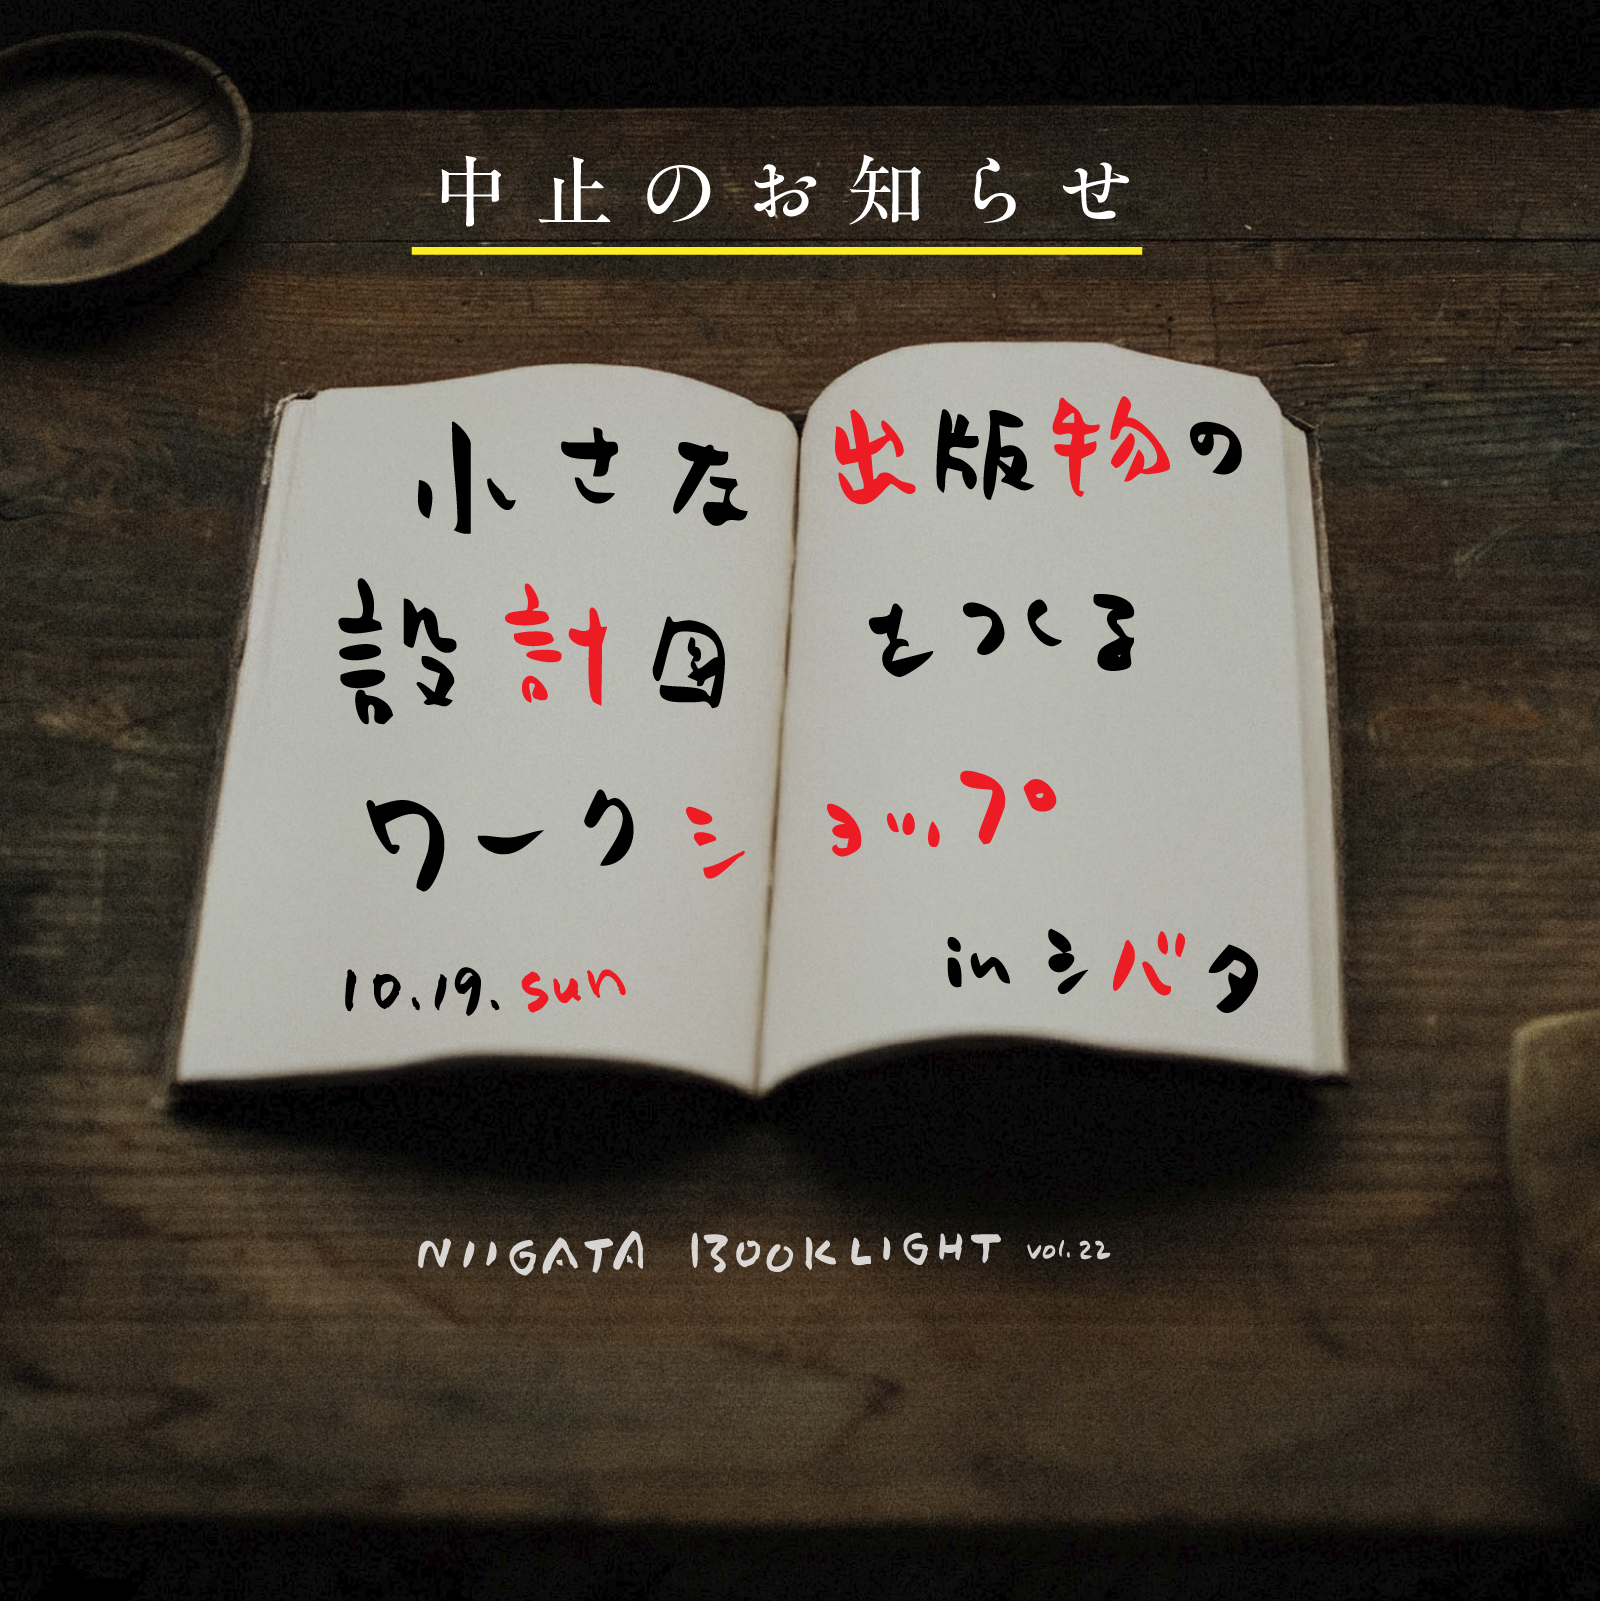 中止のお知らせ
小さな出版物の
設計図をつくる
ワークショップ
10.19.sun
inシバタ
NIIGATA BOOKLIGHT vol.22